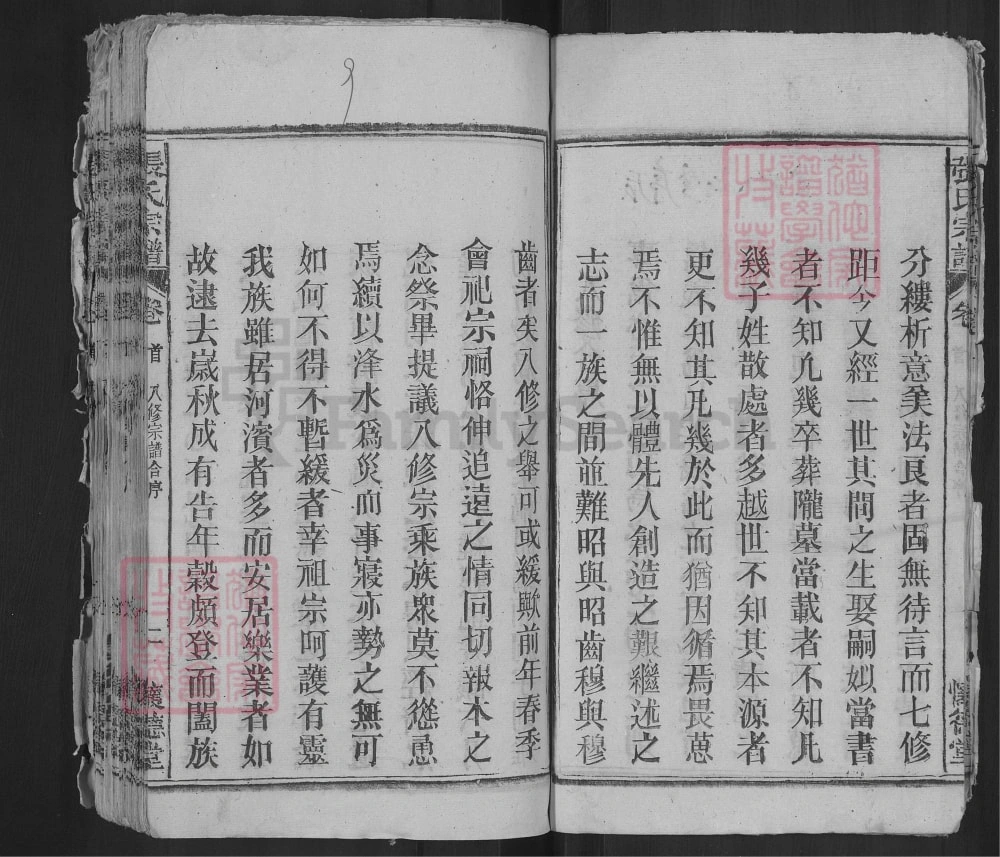 分縷析意美法良者固無待言而七修
距今又經一世其間之生娶嗣姒當書
者不知凡幾卒葬隴墓當載者不知凡
幾子姓散處者多越世不知其本源者
更不知其凡幾於此而猶因循焉畏葸
焉不惟無以體先人創造之艱繼述之
志而一族之間並難昭與昭齒穆與穆
齒者矣八修之舉可或緩歟前年春季
會祀宗祠恪伸追遠之情同切報本之
念祭畢提議八修宗乘族衆莫不慫恿
焉續以洚水爲災而事寢亦勢之無可
如何不得不暫緩者幸祖宗呵護有靈
我族雖居河濱者多而安居樂業者如
故逮去嵗秋成有告年穀頗登而闔族
張氏宗譜 卷首 八修宗譜合序 二 懷德堂
張氏宗譜 卷
懷德堂
FamilySearch